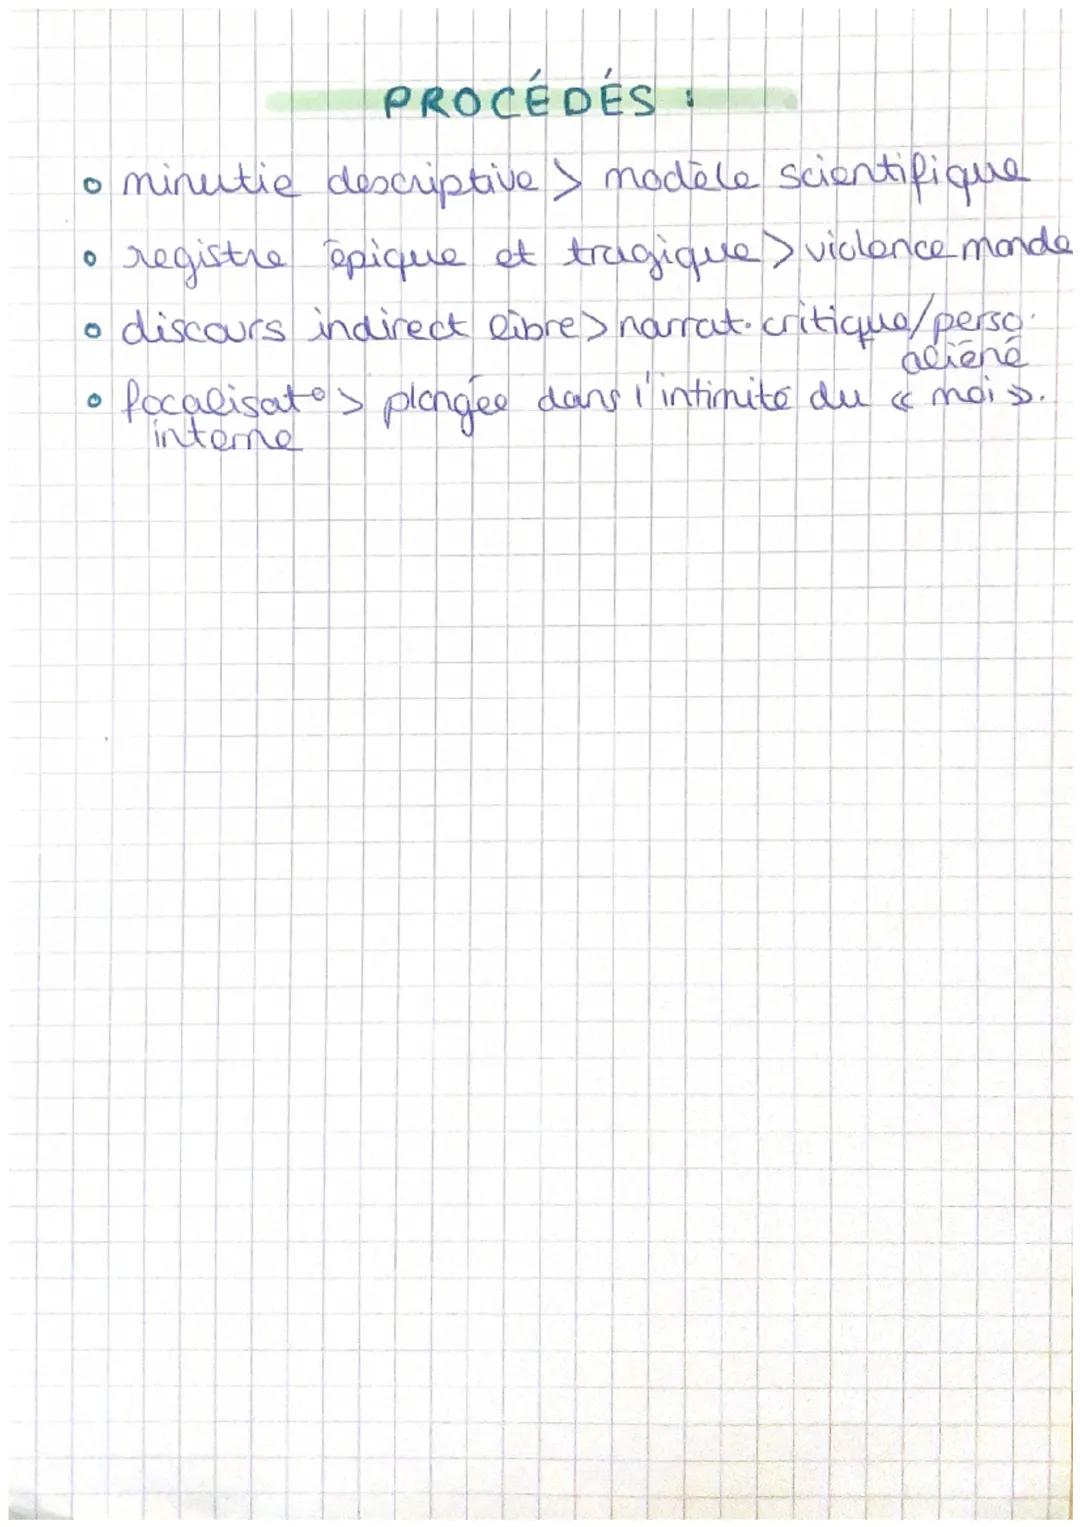 PROCÉDÉS :
o minutie descriptive > modèle scientifique
o registre épique et tragique > violence monde
o discours indirect libre > narrat. critique/perso.
aliéné
o focalisat° > plongée dans l'intimité du « moi ».
interne